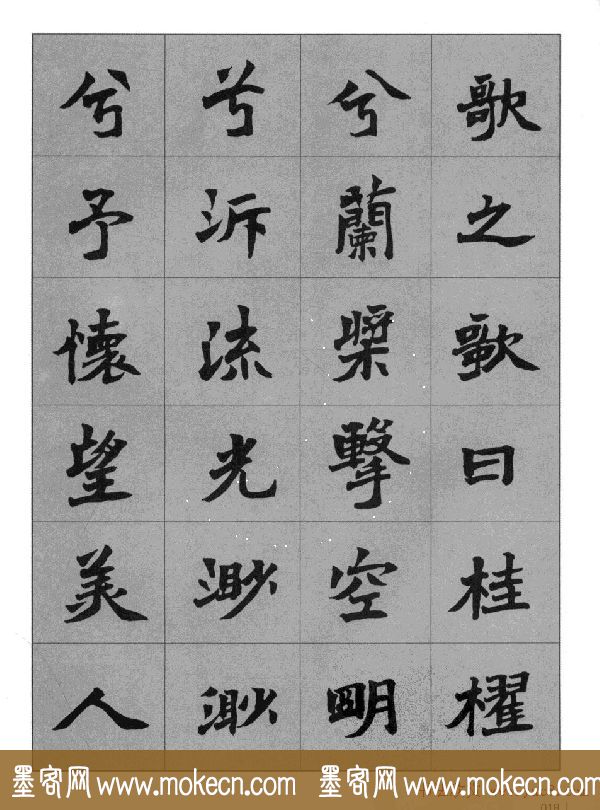 歌之歌曰桂櫂
兮蘭槳擊空明
兮泝流光渺渺
兮予懷望美人
墨客网 www.mokecn.com 墨客网 www.mokecn.com